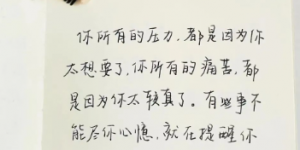 你所有的压力，都是因为你
太想要了，你所有的痛苦，都
是因为你太较真了。有些事不
能尽你心意，就在提醒你